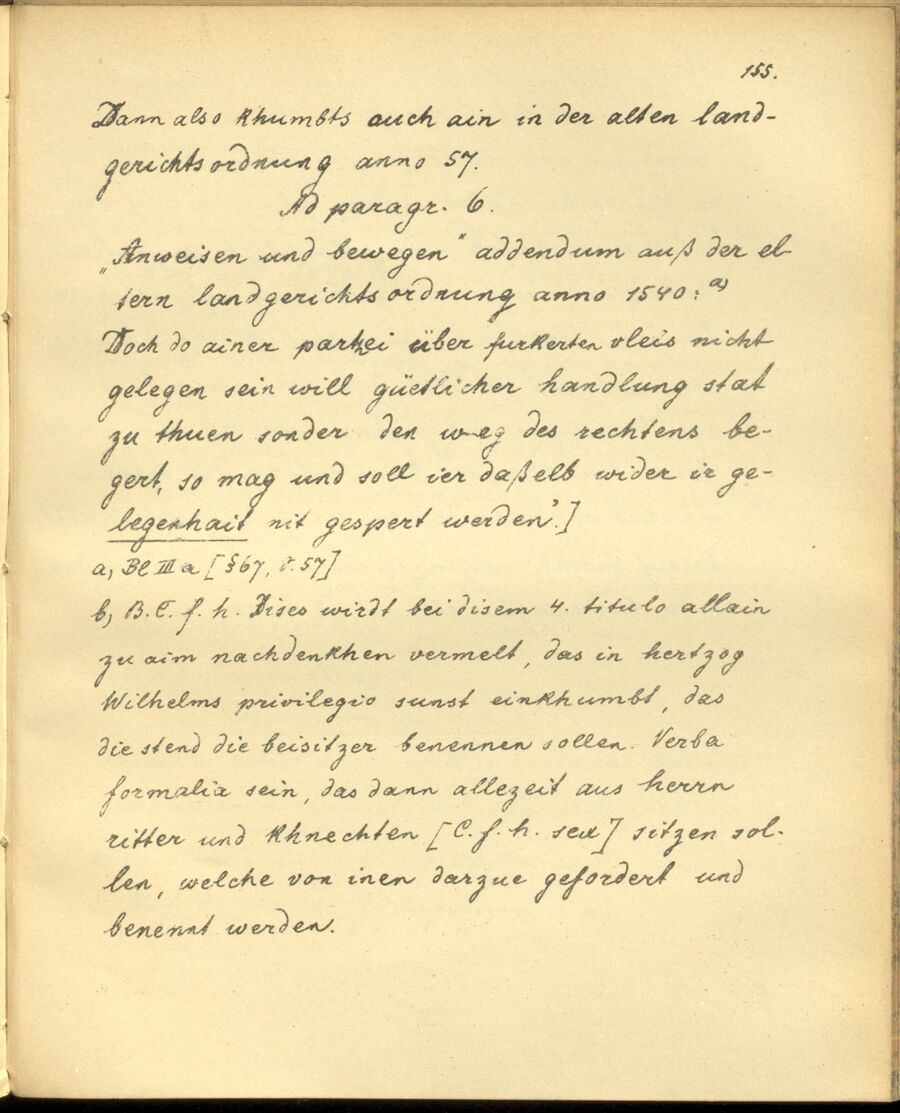 155.
Dann also khumbts auch ain in der alten land-
gerichtsordnung anno 57.
Ad paragr. 6.
„Anweisen und bewegen" addendum auß der el-
tern landgerichtsordnung anno 1540: a)
Doch do ainer partei über furkerten vleis nicht
gelegen sein will güetlicher handlung stat
zu thuen sonder den weg des rechtens be-
gert, so mag und soll ier daßelb wider ir ge-
legenhait nit gespert werden'.]
a, Bl III a [§ 67, 57]
b, B. C. f. h. Dises wirdt bei disem 4. titulo allain
zu aim nachdenkhen vermelt, das in hertzog
Wilhelms privilegio sunst einkhumbt, das
die stend die beisitzer benennen sollen. Verba
formalia sein, das dann allezeit aus herrn
ritter und khnechten [C. f. h. seu] sitzen sol-
len, welche von inen darzue gefordert und
benennt werden.